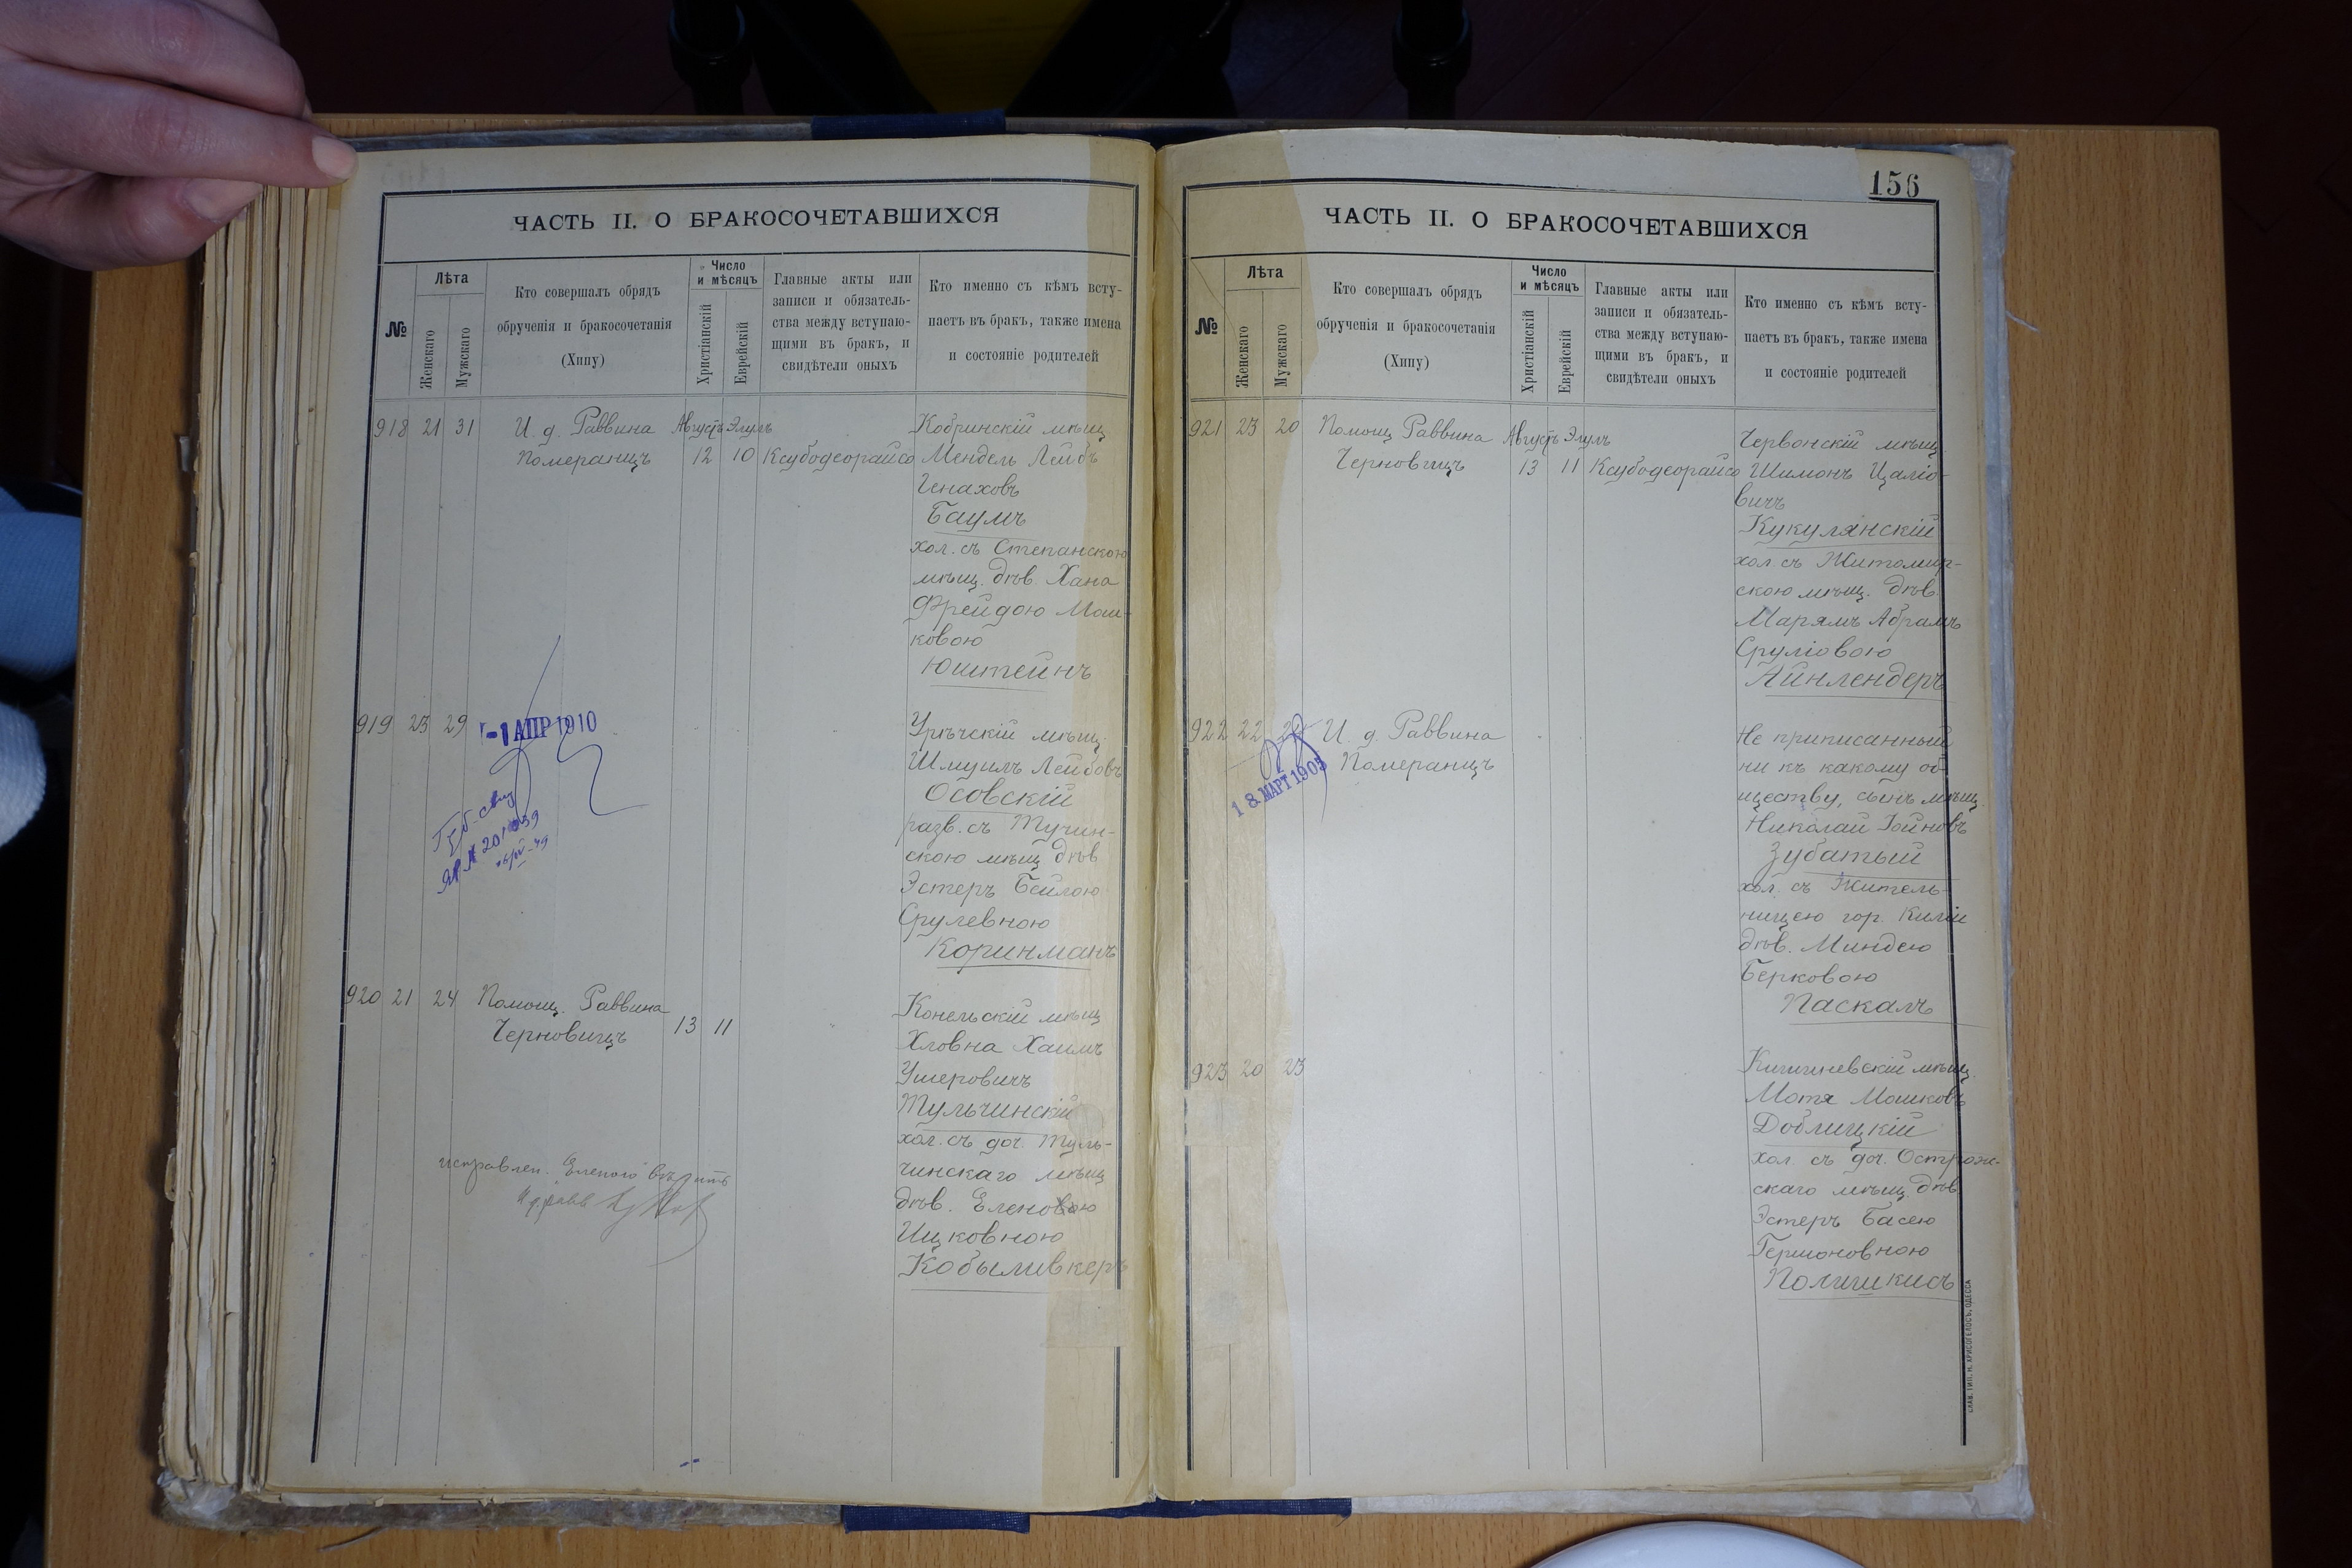 ЧАСТЬ II. О БРАКОСОЧЕТАВШИХСЯ
№
Лѣта
Женскаго
Мужскаго
Кто совершалъ обрядъ
обрученія и бракосочетанія
(Хипу)
Число
и мѣсяцъ
Христіанскій
Еврейскій
Главные акты или
записи и обязатель-
ства между вступаю-
щими въ бракъ, и
свидѣтели оныхъ
Кто именно съ кѣмъ всту-
паетъ въ бракъ, также имена
и состояніе родителей
918 21 31 И. д. Раввина Августъ Элулъ
Померанцъ 12 10 Ксубодеорайсо
Кобринскій мѣщ
Мендель Лейбъ
Генаховъ
Баумъ
хол. съ Степанскою
мѣщ. дѣв. Хана
Фрейдою Мош-
ковою
Юштейнъ
919 23 29
-1 АПР 1910
Урѣчскій мѣщ.
Шмуилъ Лейбовъ
Осовскій
разв. съ Тучин-
скою мѣщ дѣв
Эстеръ Бейлою
Срулевною
Коринманъ
920 21 24 Помощ. Раввина
Черновицъ 13 11
Конельскій мѣщ
Хловна Хаимъ
Ушеровичъ
Тульчинскій
хол. съ доч. Туль-
чинскаго мѣщ
дѣв. Еленою
Ицковною
Кобыливкеръ
исправлен. Еленою вѣрить
156
ЧАСТЬ II. О БРАКОСОЧЕТАВШИХСЯ
№
Лѣта
Женскаго
Мужскаго
Кто совершалъ обрядъ
обрученія и бракосочетанія
(Хипу)
Число
и мѣсяцъ
Христіанскій
Еврейскій
Главные акты или
записи и обязатель-
ства между вступаю-
щими въ бракъ, и
свидѣтели оныхъ
Кто именно съ кѣмъ всту-
паетъ въ бракъ, также имена
и состояніе родителей
921 23 20 Помощ Раввина Августъ Элулъ
Черновицъ 13 11 Ксубодеорайсо
Червонскій мѣщ.
Шимонъ Цаліо-
вичъ
Кукулянскій
хол. съ Житомир-
скою мѣщ. дѣв.
Марямъ Абрамъ
Сруліовою
Айнлендеръ
922 22 И. д. Раввина
Померанцъ
18 МАРТ 1905
Не приписанный
ни къ какому об-
ществу, сынъ мѣщ.
Николай Іойновъ
Зубатый
хол. съ Житель-
ницею гор. Киліи
дѣв. Миндею
Берковою
Паскалъ
923 20 23
Кишиневскій мѣщ.
Мотя Мошковъ
Доблицкій
хол. съ доч. Острож-
скаго мѣщ. дѣв
Эстеръ Басею
Гершоновною
Полишкисъ
СЛАВ. ТИП. Н. ХРИСОГЕЛОСЪ, ОДЕССА